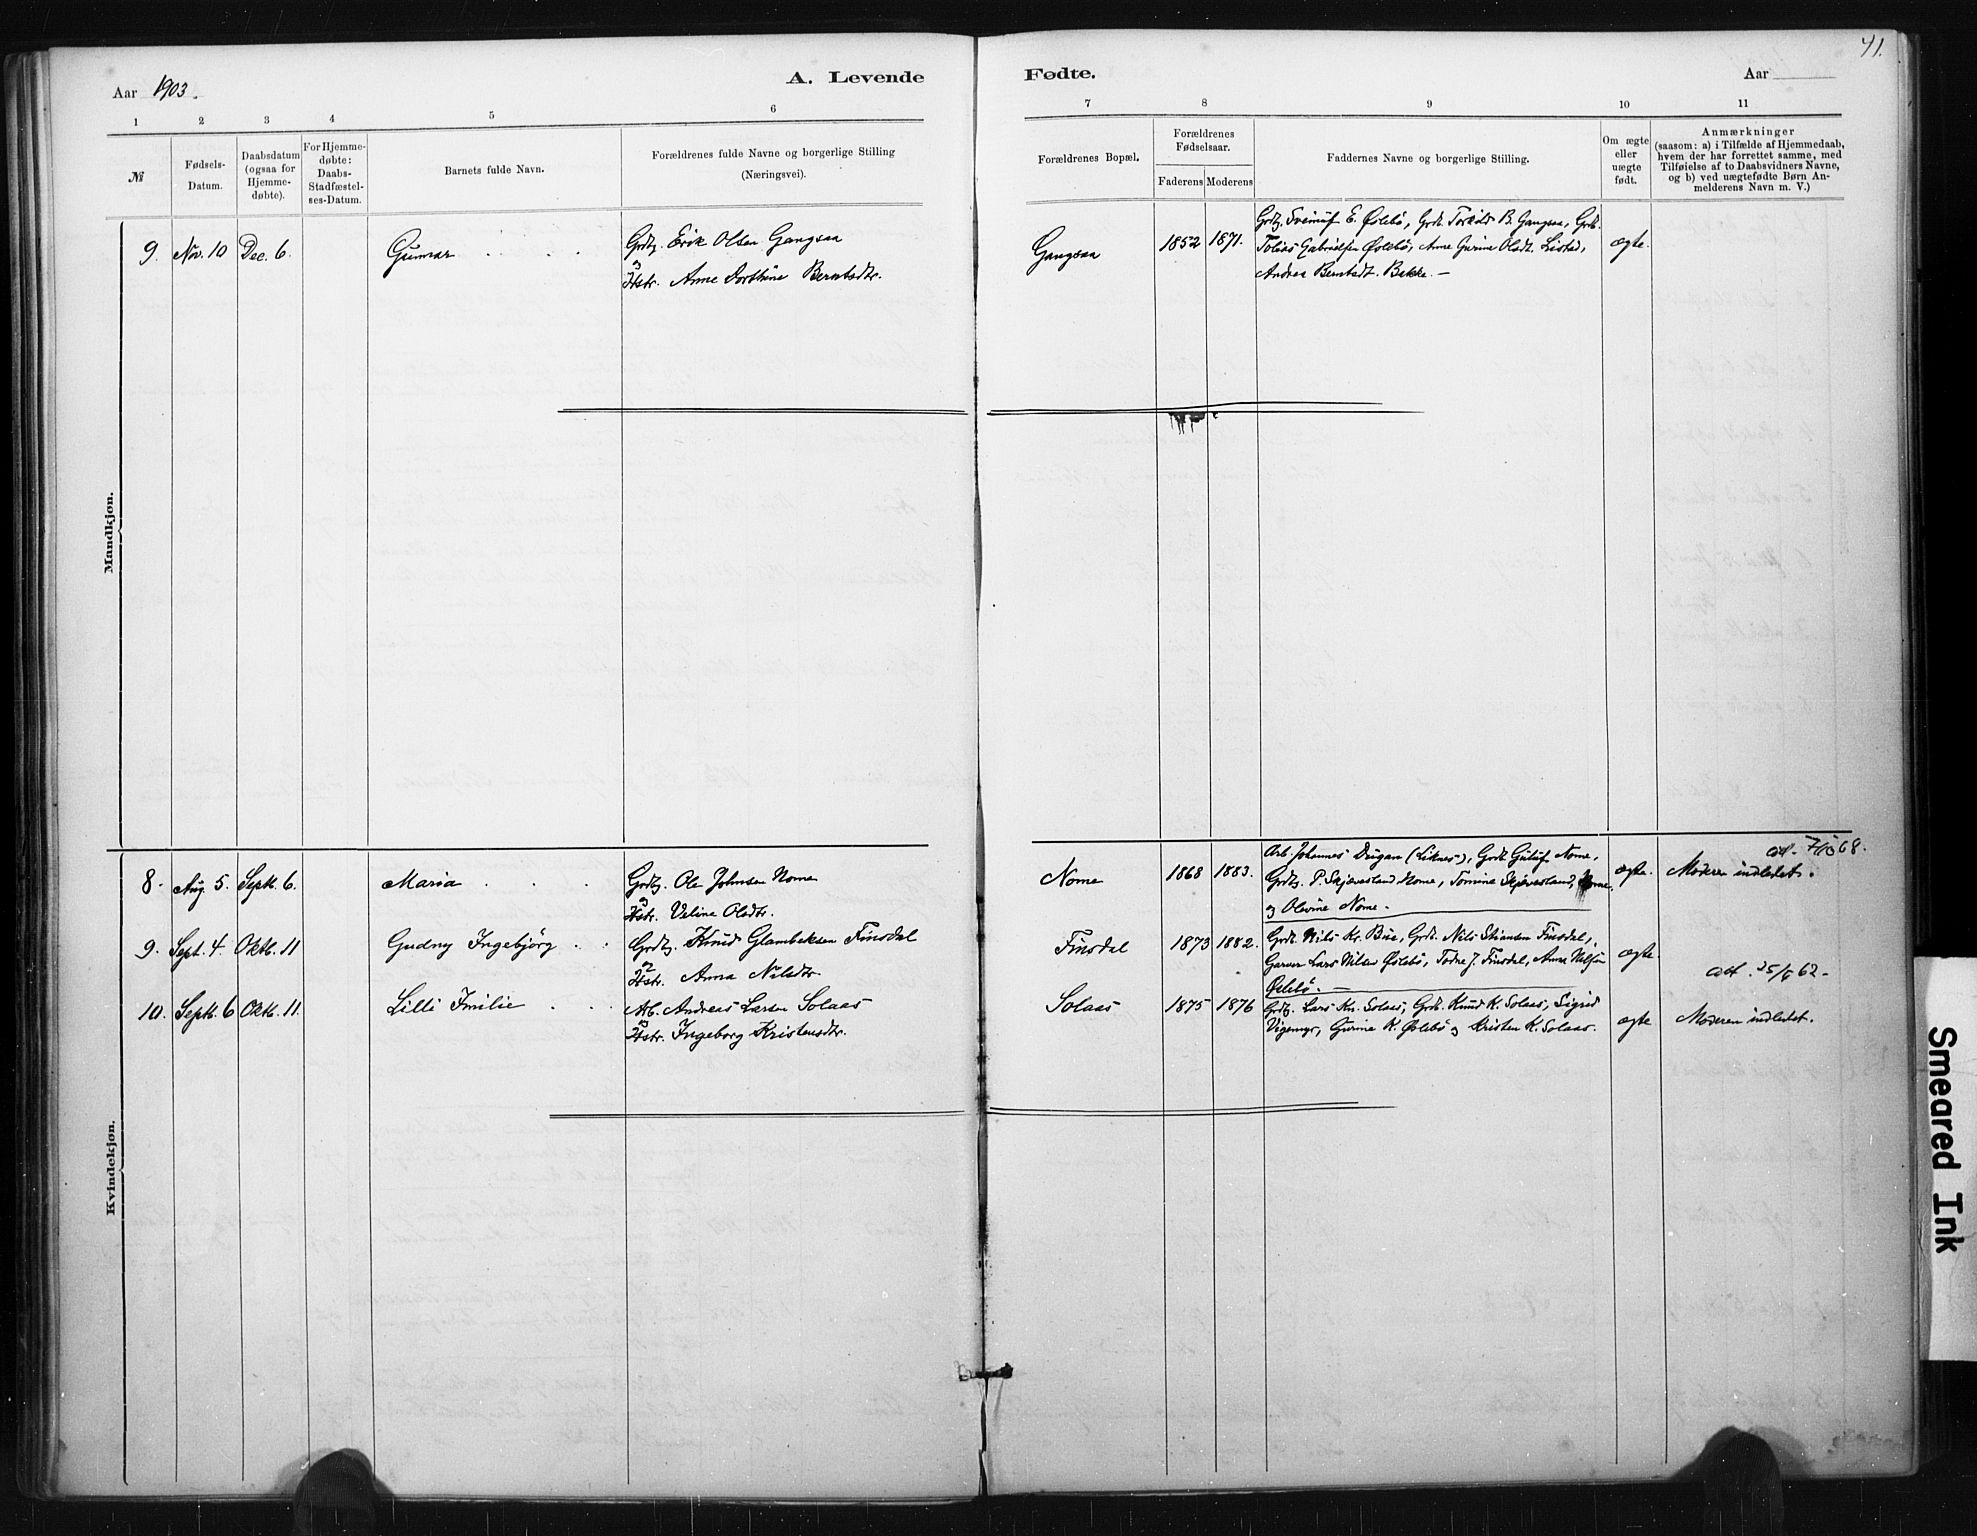 41.
Aar 1903.
A. Levende Fødte.
Aar
1 2 3 4 5 6 7 8 9 10 11
№
Fødsels-Datum.
Daabsdatum (ogsaa for Hjemme-døbte).
For Hjemme-døbte: Daabs-Stadfæstel-ses-Datum.
Barnets fulde Navn.
Forældrenes fulde Navne og borgerlige Stilling (Næringsvei).
Forældrenes Bopæl.
Forældrenes Fødselsaar.
Faderens Moderens
Faddernes Navne og borgerlige Stilling.
Om ægte eller uægte født.
Anmærkninger
(saasom: a) i Tilfælde af Hjemmedaab, hvem der har forrettet samme, med Tilføielse af to Daabsvidners Navne, og b) ved uægtefødte Børn An-melderens Navn m. V.)
Mandkjøn.
9. Nov. 10 Dec. 6. Gunnar
Grdbr. Erik Olsen Gangsaa
og Hstr. Anne Dorthine Berntsdtr.
Gangsaa 1852 1871.
E. Øslebø, B. Gangsaa,
Tobias Gabrielsen Øslebø, Anne Gurine Olsdt.
Andrea Berntsdt. Bakke. —
ægte.
Kvindekjøn.
8. Aug. 5. Septb. 6. Maria
Ole Johnsen Nome
og Hstr. Veline Olsdtr.
Nome 1868 1883.
Arb. Johannes Drigan (Liknes), Nome,
P. Skjævesland Nome, Tomine Skjævesland, Nome
og Olevine Nome.
ægte. Moderen indledet.
9. Sept. 4. Oktb. 11 Gudny Ingebjørg
Knud Glambeksen Finsdal
og Hstr. Anna Nilsdtr.
Finsdal 1873 1882.
Nils Kr. Bue, Nils Finsdal,
Garver Lars Nilsen Øslebø, Todne J. Finsdal, Anne
Øslebø. —
ægte.
10. Septb. 6 Oktb. 11. Lilli Emilie
Arb. Andreas Larsen Solaas
og Hstr. Ingeborg Kristensdtr.
Solaas 1875 1876
Lars Kn. Solaas, Knud K. Solaas, Sigrid
Vigemyr, Gurine K. Øslebø og Kristen K. Solaas.
ægte Moderen indledet.
Smeared Ink